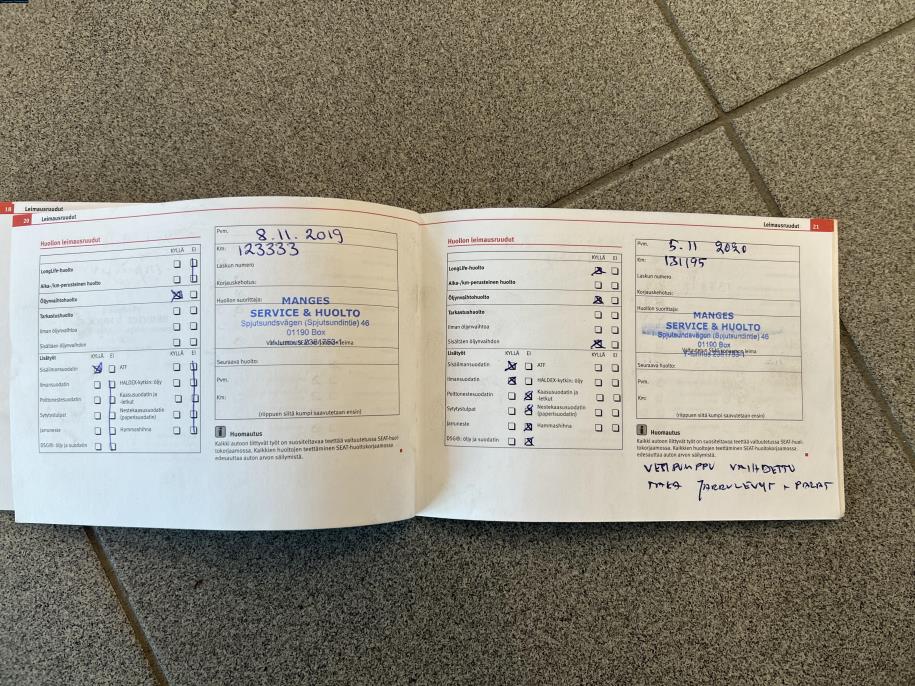 18 Leimausruudut
20 Leimausruudut
Huollon leimausruudut
KYLLÄ EI
LongLife-huolto
Aika-/km-perusteinen huolto
Öljynvaihtohuolto
Tarkastushuolto
Ilman öljynvaihtoa
Sisältäen öljynvaihdon
Lisätyöt KYLLÄ EI KYLLÄ EI
Sisäilmansuodatin ATF
Ilmansuodatin HALDEX-kytkin: öljy
Polttonestesuodatin Kaasusuodatin ja -letkut
Sytytystulpat Nestekaasusuodatin (paperisuodatin)
Jarruneste Hammashihna
DSG®: öljy ja suodatin
Pvm. 8.11.2019
Km: 123333
Laskun numero
Korjauskehotus:
Huollon suorittaja:
MANGES
SERVICE & HUOLTO
Spjutsundsvägen (Spjutsundintie) 46
01190 Box
Seuraava huolto:
Pvm.
Km:
(riippuen siitä kumpi saavutetaan ensin)
Huomautus
Kaikki autoon liittyvät työt on suositeltavaa teettää valtuutetussa SEAT-huol-
tokorjaamossa. Kaikkien huoltojen teettäminen SEAT-huoltokorjaamossa
edesauttaa auton arvon säilymistä.
Leimausruudut 21
Huollon leimausruudut
KYLLÄ EI
LongLife-huolto
Aika-/km-perusteinen huolto
Öljynvaihtohuolto
Tarkastushuolto
Ilman öljynvaihtoa
Sisältäen öljynvaihdon
Lisätyöt KYLLÄ EI KYLLÄ EI
Sisäilmansuodatin ATF
Ilmansuodatin HALDEX-kytkin: öljy
Polttonestesuodatin Kaasusuodatin ja -letkut
Sytytystulpat Nestekaasusuodatin (paperisuodatin)
Jarruneste Hammashihna
DSG®: öljy ja suodatin
Pvm. 5.11 2020
Km: 131195
Laskun numero
Korjauskehotus:
Huollon suorittaja:
MANGES
SERVICE & HUOLTO
Spjutsundsvägen (Spjutsundintie) 46
01190 Box
Seuraava huolto:
Pvm.
Km:
(riippuen siitä kumpi saavutetaan ensin)
Huomautus
Kaikki autoon liittyvät työt on suositeltavaa teettää valtuutetussa SEAT-huol-
tokorjaamossa. Kaikkien huoltojen teettäminen SEAT-huoltokorjaamossa
edesauttaa auton arvon säilymistä.
VESIPUMPPU VAIHDETTU
TAKA JARRULEVYT + PALAT